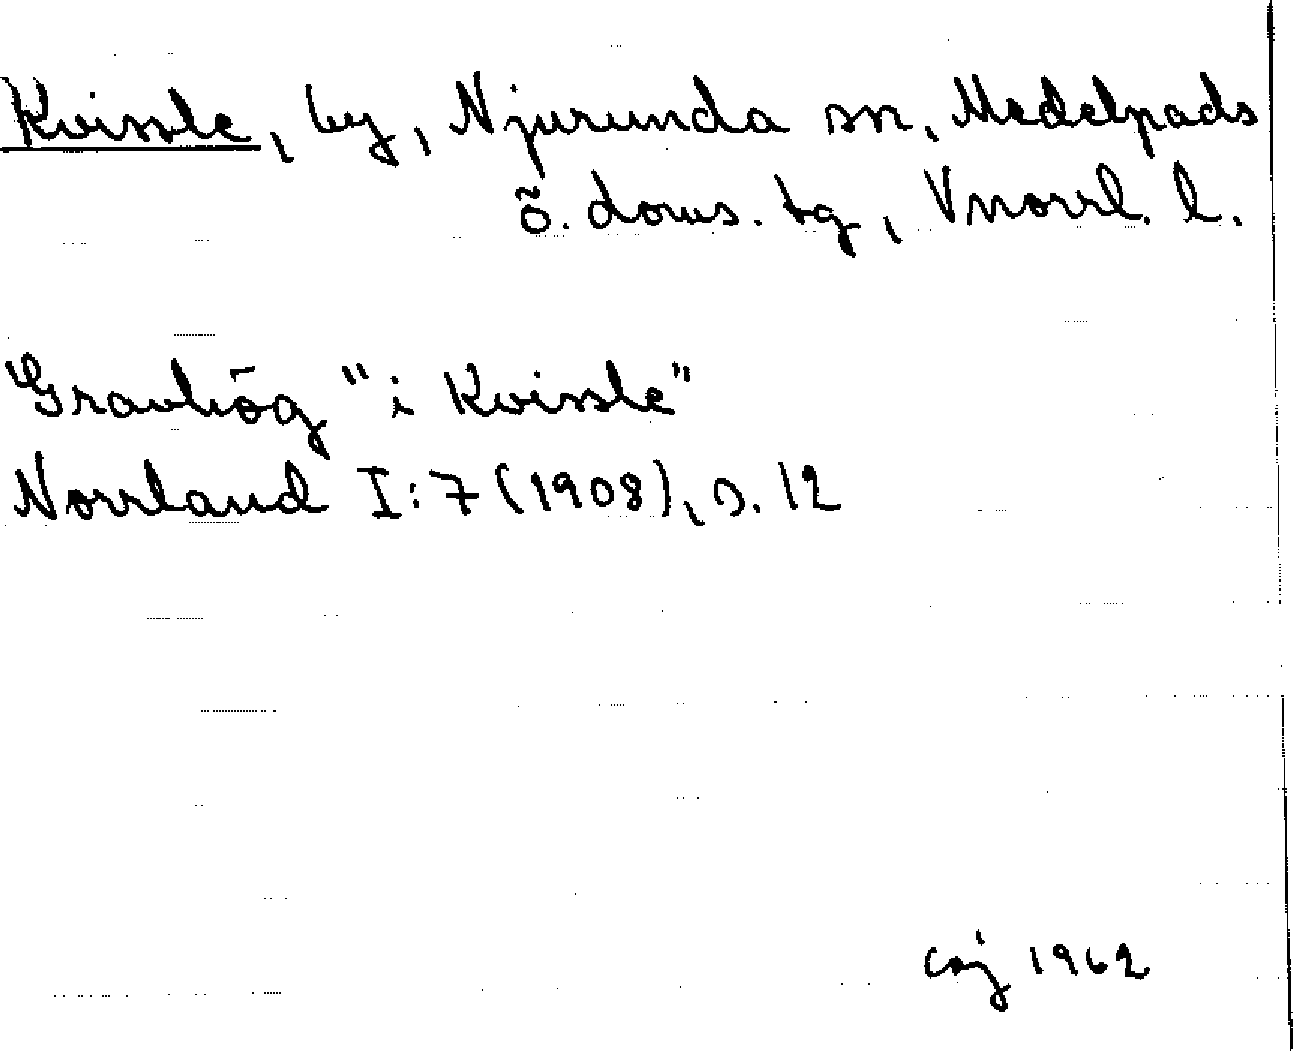 Kvissle, by, Njurunda sn, Medelpads
ö. doms. tg, Vnorrl. l.
Gravhög "i Kvissle"
Norrland I:7 (1908), s. 12
caj 1962